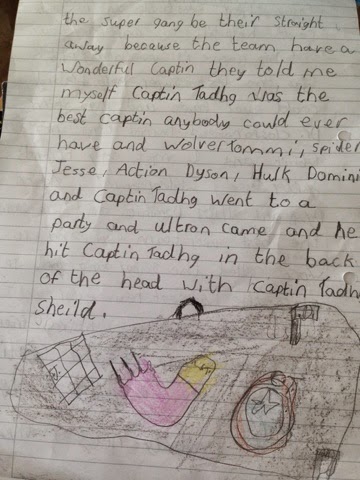 the super gang be their straight
away because the team have a
wonderful Captin they told me
myself Captin Tadhg was the
best captin anybody could ever
have and WolverTommi, spider
Jesse, Action Dyson, Hulk Domini
and Captin Tadhg went to a
party and ultron came and he
hit Captin Tadhg in the back
of the head with Captin Tadh
Sheild.